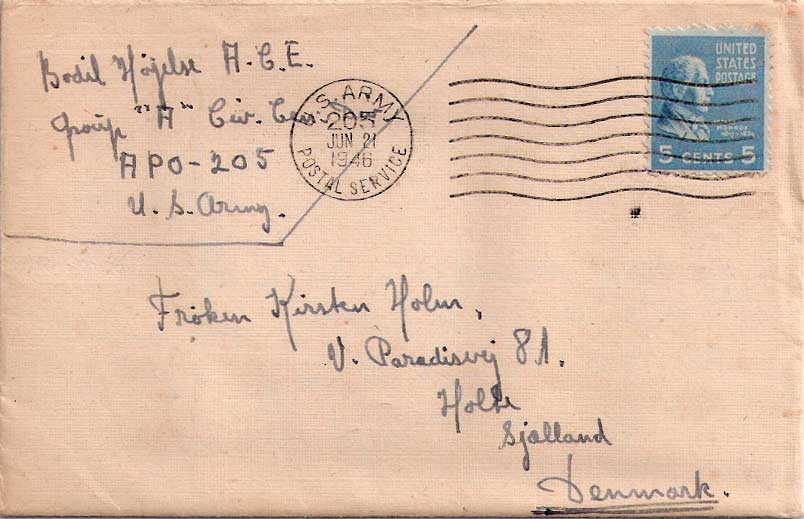 Bodil Højelse A.C.E.
Group "A" Civ. Cen.
APO-205
U.S. Army.
U.S. ARMY
205
JUN 21
1946
POSTAL SERVICE
UNITED
STATES
POSTAGE
MONROE
5 CENTS 5
Frøken Kirsten Holm,
V. Paradisvej 81.
Holte
Sjælland
Denmark.